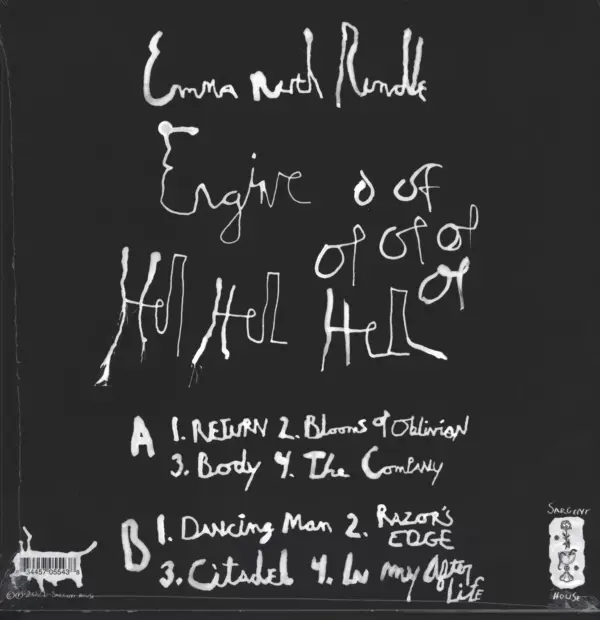 Emma Ruth Rundle
Engine o of
of of of
Hell Hell Hell of
A 1. RETURN 2. Blooms of Oblivion
3. Body 4. The Company
B 1. Dancing Man 2. RAZOR'S EDGE
3. Citadel 4. In my After Life
SARGENT
HOUSE